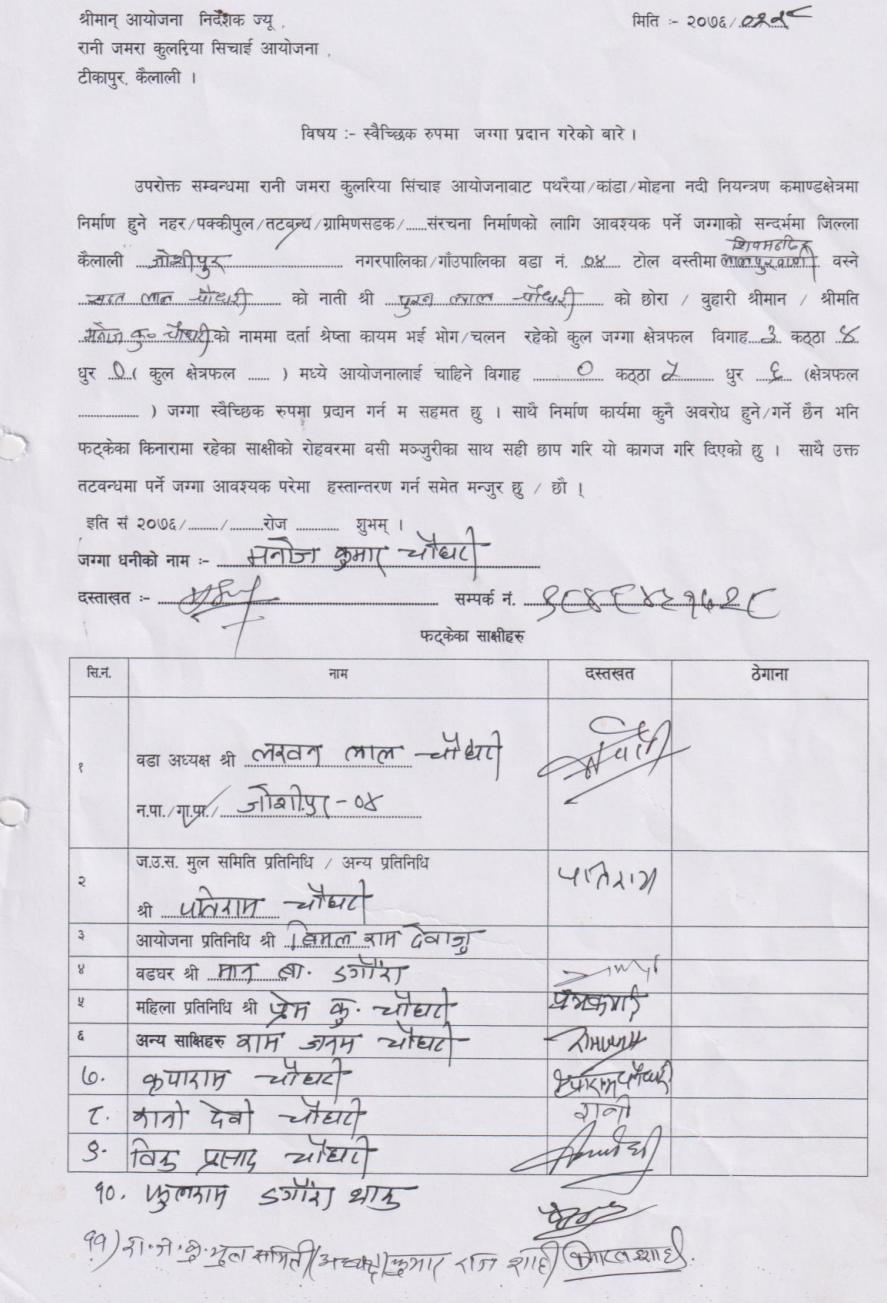 श्रीमान् आयोजना निर्देशक ज्यू , मिति :- २०७६/
रानी जमरा कुलरिया सिचाई आयोजना ,
टीकापुर, कैलाली ।
विषय :- स्वैच्छिक रुपमा जग्गा प्रदान गरेको बारे ।
उपरोक्त सम्बन्धमा रानी जमरा कुलरिया सिंचाइ आयोजनाबाट पथरैया/कांडा/मोहना नदी नियन्त्रण कमाण्डक्षेत्रमा
निर्माण हुने नहर/पक्कीपुल/तटबन्ध/ग्रामिणसडक/......संरचना निर्माणको लागि आवश्यक पर्ने जग्गाको सन्दर्भमा जिल्ला
कैलाली जोशीपुर नगरपालिका/गाँउपालिका वडा नं. ०४ टोल वस्तीमा वस्ने
लाल चौधरी को नाती श्री पुरन लाल चौधरी को छोरा / बुहारी श्रीमान / श्रीमति
मनोज कु० चौधरी को नाममा दर्ता श्रेष्ता कायम भई भोग/चलन रहेको कुल जग्गा क्षेत्रफल विगाह ३ कठ्ठा ४
धुर ० ( कुल क्षेत्रफल ...... ) मध्ये आयोजनालाई चाहिने विगाह ० कठ्ठा २ धुर ६ (क्षेत्रफल
.................. ) जग्गा स्वैच्छिक रुपमा प्रदान गर्न म सहमत छु । साथै निर्माण कार्यमा कुनै अवरोध हुने/गर्ने छैन भनि
फट्केका किनारामा रहेका साक्षीको रोहवरमा वसी मञ्जुरीका साथ सही छाप गरि यो कागज गरि दिएको छु । साथै उक्त
तटवन्धमा पर्ने जग्गा आवश्यक परेमा हस्तान्तरण गर्न समेत मन्जुर छु / छौ ।
इति सं २०७६/........./.........रोज ............ शुभम् ।
जग्गा धनीको नाम :- मनोज कुमार चौधरी
दस्ताखत :- सम्पर्क नं.
फट्केका साक्षीहरु
सि.नं. नाम दस्तखत ठेगाना
१ वडा अध्यक्ष श्री लखन लाल चौधरी
न.पा./गा.पा./ जोशीपुर - ०४
ज.उ.स. मुल समिति प्रतिनिधि / अन्य प्रतिनिधि
२ श्री पतिराम चौधरी पतिराम
३ आयोजना प्रतिनिधि श्री विमल राम देवाजु
४ वडघर श्री मान ब. डगौरा
५ महिला प्रतिनिधि श्री प्रेम कु. चौधरी
६ अन्य साक्षिहरु राम जनम चौधरी
७. कृपाराम चौधरी
८. देवी चौधरी
९. प्रसाद चौधरी
१०. फुलराम डगौरा थारु
११) रा.ज.कु. मुल समिति (अध्यक्ष) कुमार राज शाही